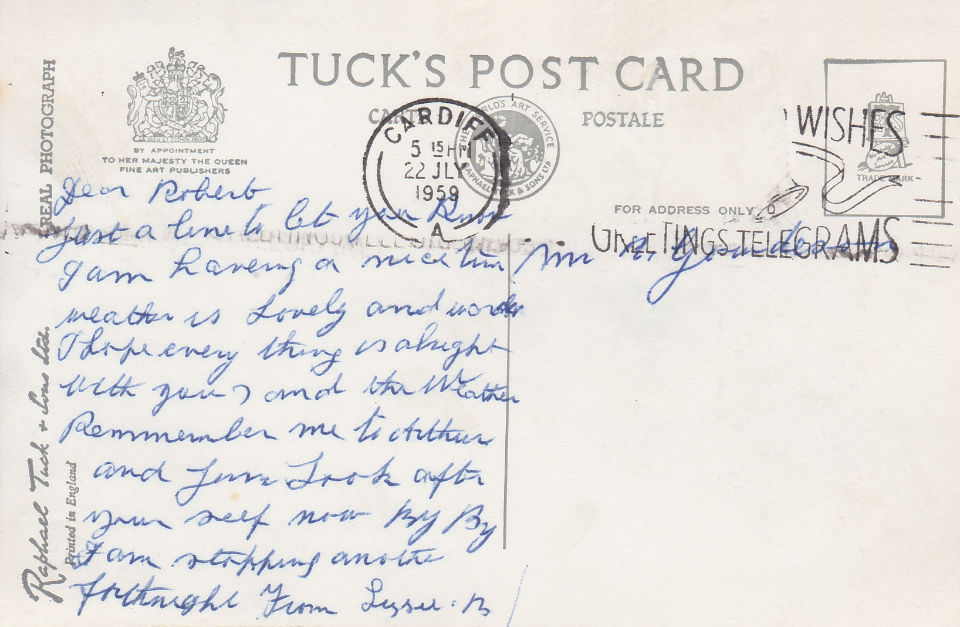 REAL PHOTOGRAPH
TUCK'S POST CARD
CARTE POSTALE
BY APPOINTMENT
TO HER MAJESTY THE QUEEN
FINE ART PUBLISHERS
CARDIFF
5 15 PM
22 JLY
1959
A
THE WORLD'S ART SERVICE
RAPHAEL TUCK & SONS LTD
WISHES
TRADE MARK
FOR ADDRESS ONLY
GREETINGS TELEGRAMS
Dear Robert
Just a line to let you know
I am having a nice time
weather is Lovely and
I hope every thing is alright
with you and the Weather
Remmember me to Arthur
and Look after
your self now By By
I am stopping another
forthnight From
Raphael Tuck & Sons Ltd.
Printed in England